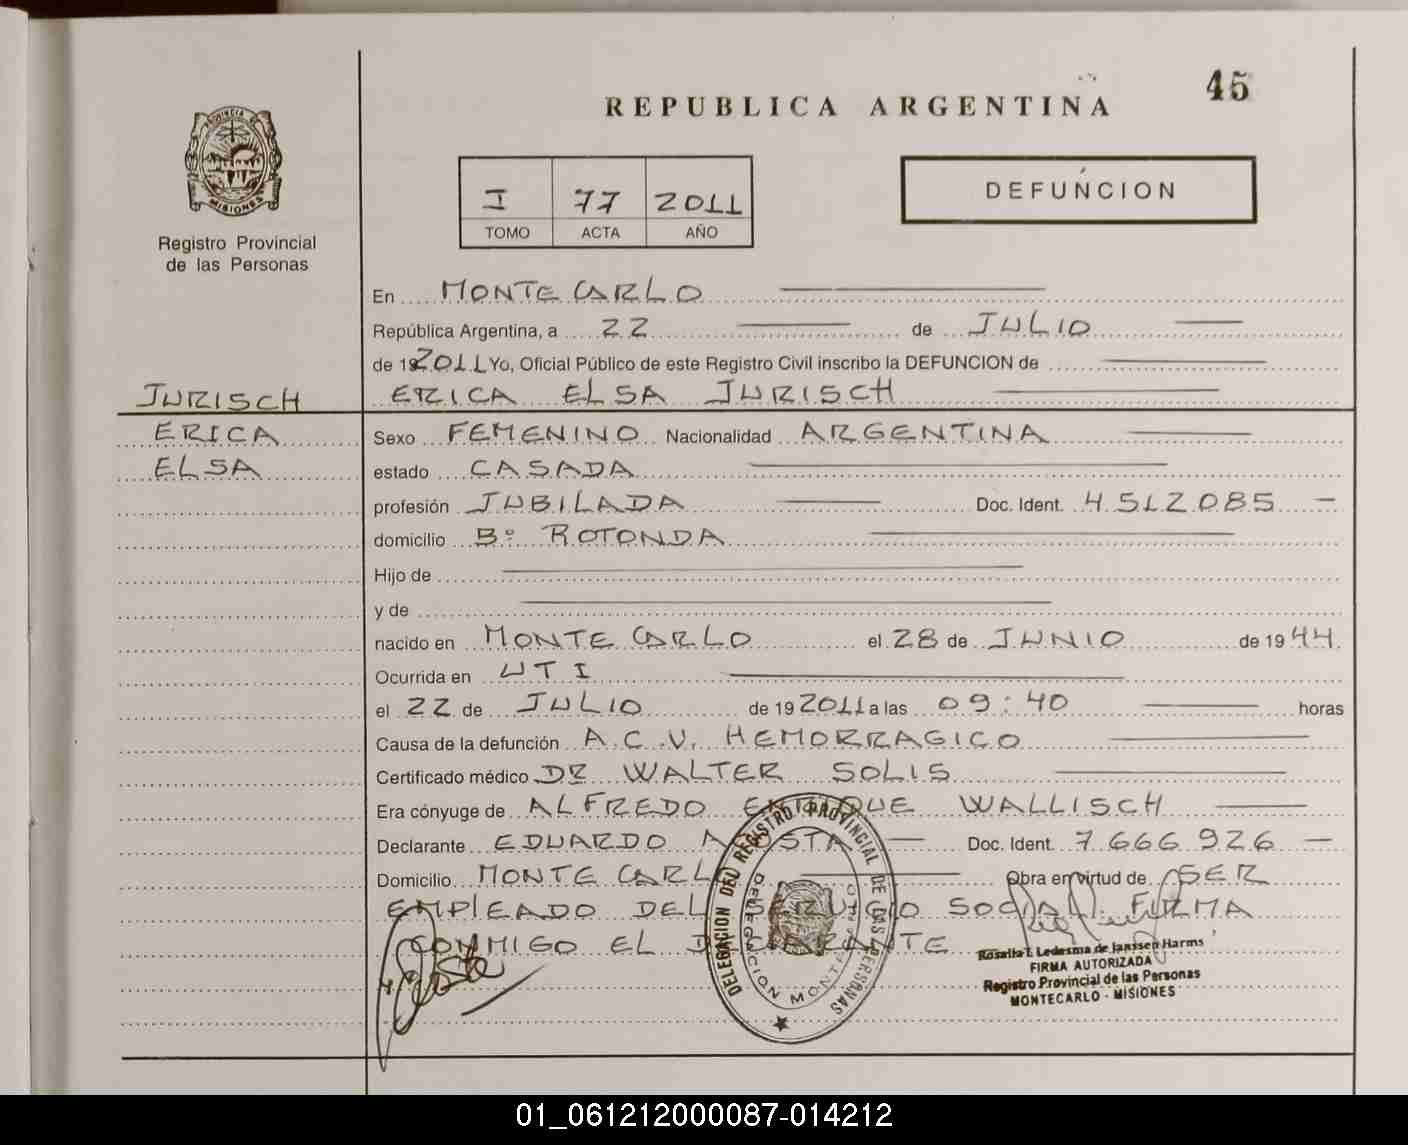 45
REPUBLICA ARGENTINA
PROVINCIA DE
MISIONES
Registro Provincial
de las Personas
I 77 2011
TOMO ACTA AÑO
DEFUNCION
En MONTE CARLO
República Argentina, a 22 de JULIO
de 192011 Yo, Oficial Público de este Registro Civil inscribo la DEFUNCION de
JURISCH
ERICA
ELSA
ERICA ELSA JURISCH
Sexo FEMENINO Nacionalidad ARGENTINA
estado CASADA
profesión JUBILADA Doc. Ident. 4.512.085 -
domicilio Bº ROTONDA
Hijo de
y de
nacido en MONTE CARLO el 28 de JUNIO de 1944
Ocurrida en UTI
el 22 de JULIO de 19 2011 a las 09:40 horas
Causa de la defunción A.C.V. HEMORRAGICO
Certificado médico DR WALTER SOLIS
Era cónyuge de ALFREDO ENRIQUE WALLISCH
Declarante EDUARDO ACOSTA Doc. Ident. 7.666.926 -
Domicilio MONTE CARLO Obra en virtud de SER
EMPLEADO DEL SERVICIO SOCIAL. FIRMA
CONMIGO EL DECLARANTE
DELEGACION DEL REGISTRO PROVINCIAL DE LAS PERSONAS
DELEGACION MONTECARLO
Rosalia T. Ledesma de Janssen Harms
FIRMA AUTORIZADA
Registro Provincial de las Personas
MONTECARLO - MISIONES
01_061212000087-014212